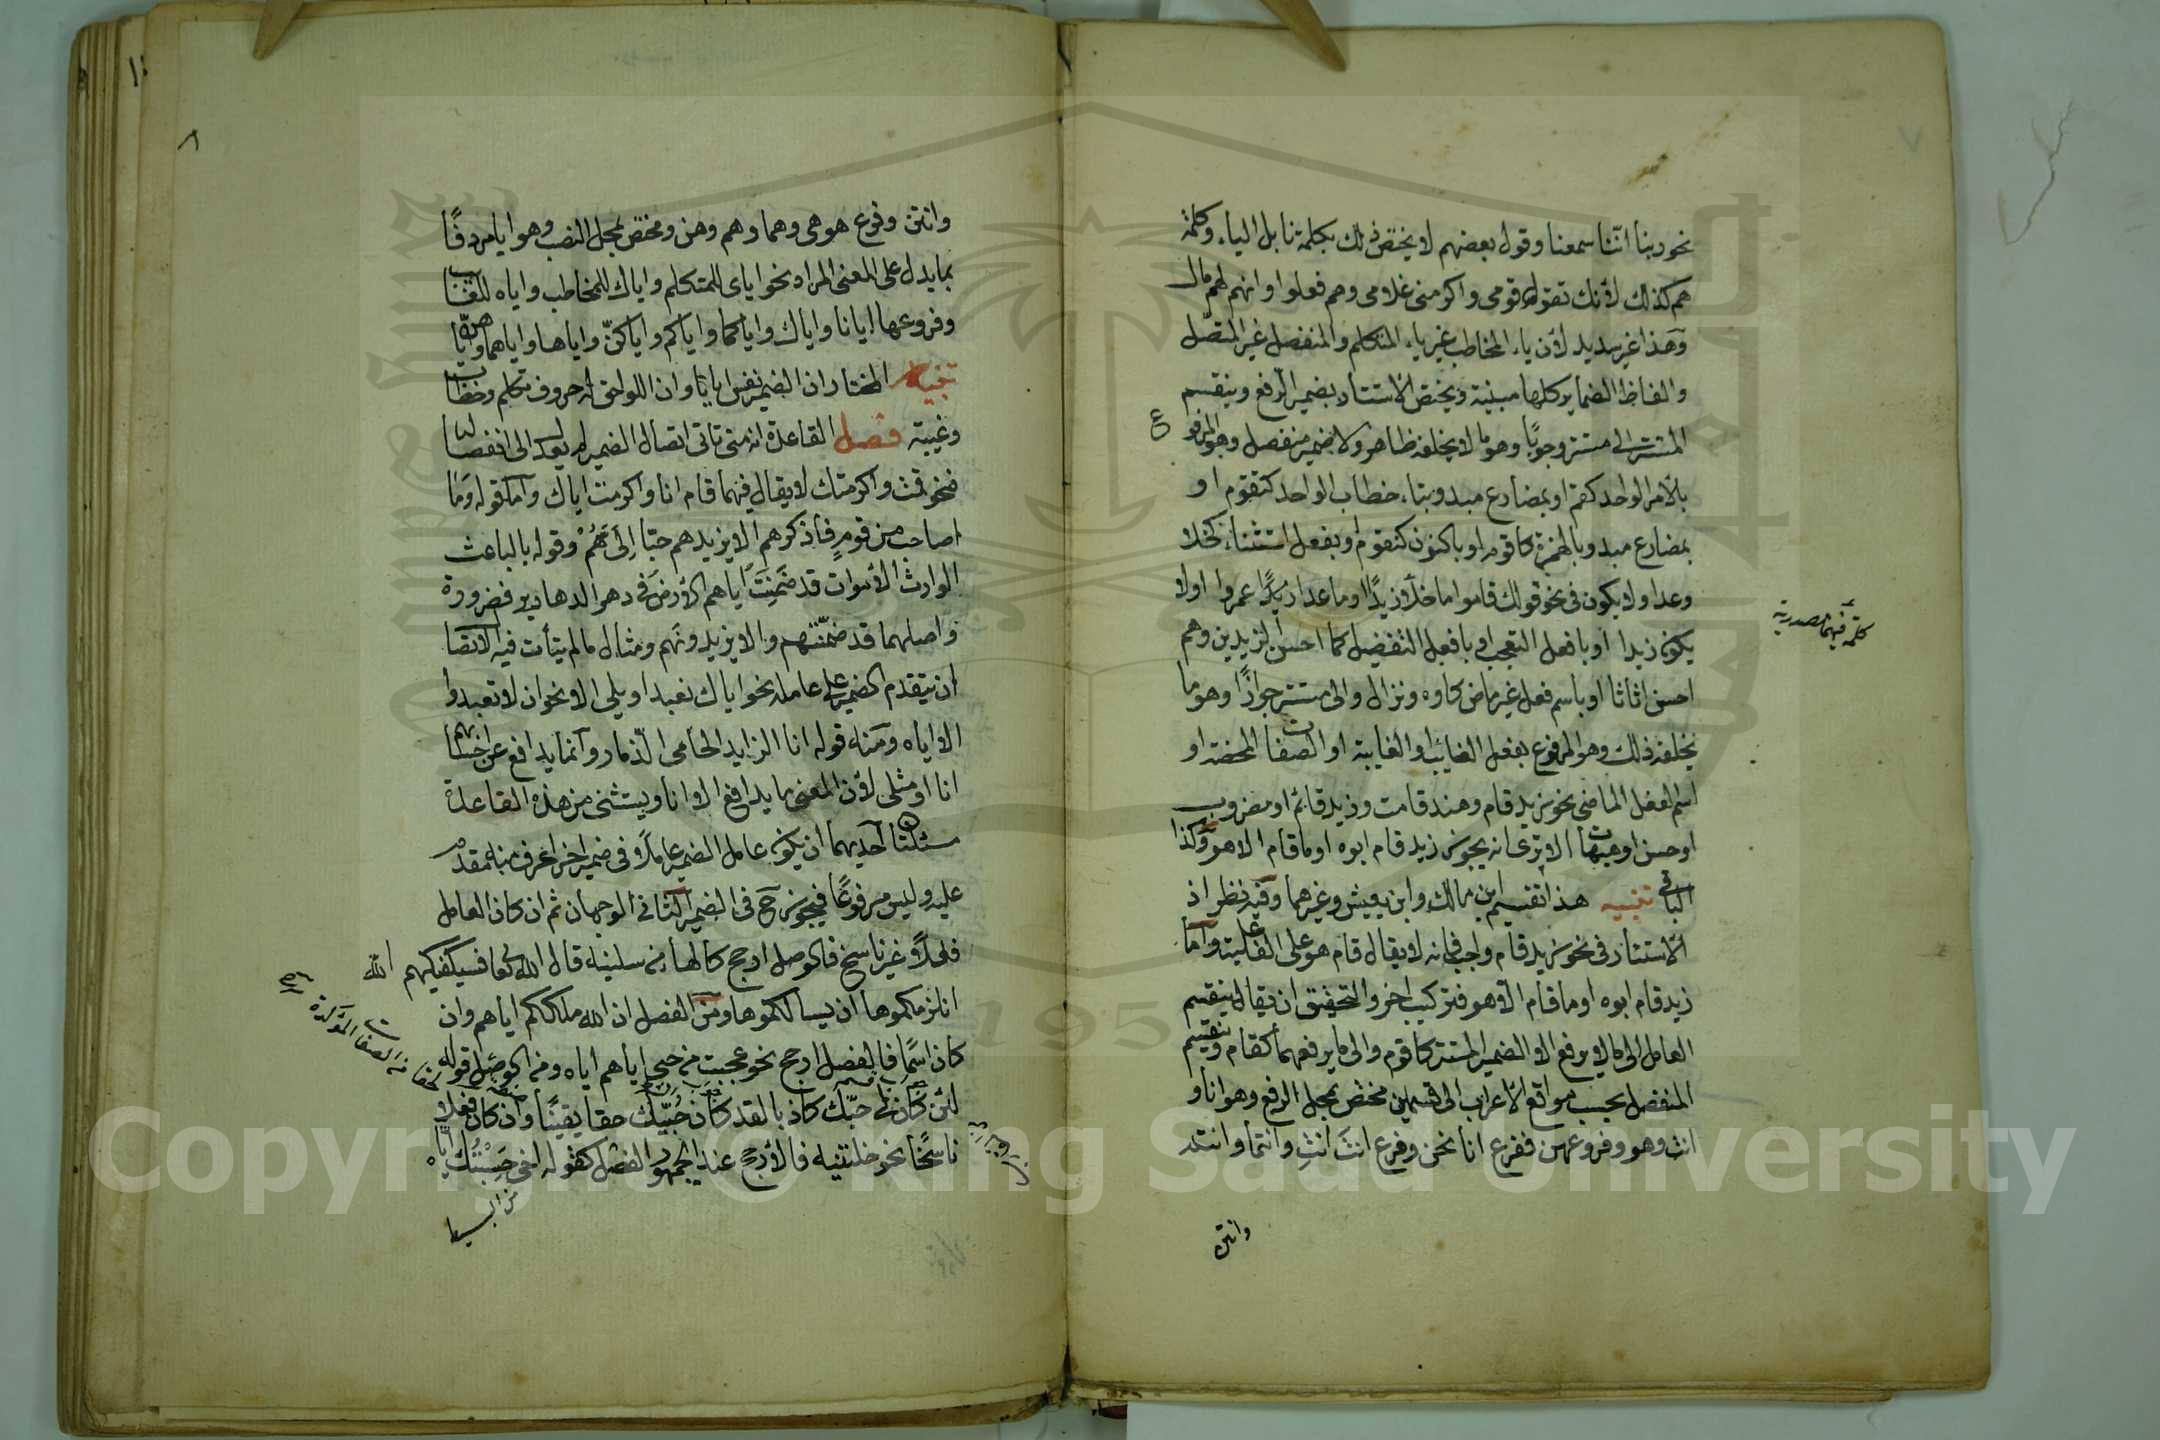 نحو ربنا اننا سمعنا وقول بعضهم لا يختص ذلك بكلمة نا بل الياء وكلمة
هم كذلك لأنك تقول قومى واكرمنى غلامى وهم فعلوا وانهم لهم مال
وهذا غير سديد لأن ياء المخاطب غير ياء المتكلم والمنفصل غير المتصل
والفاظ الضماير كلها مبنية ويختص الاستتار بضمير الرفع وينقسم
المستتر الى مستتر وجوبا وهو ما لا يخلفه ظاهر ولا ضمير منفصل وهو المرفوع
بالأمر الواحد كقم او بمضارع مبدو بتاء خطاب الواحد كتقوم او
بمضارع مبدو بالهمزة كاقوم او بالنون كنقوم او بفعل استثناء كخلا
وعدا ولا يكون فى نحو قولك قاموا ما خلا زيدًا او ما عدا زيدًا عمروا او لا
يكون زيدا او بافعل التعجب او بافعل التفضيل كما احسن الزيدين وهم
احسن اثاثا او باسم فعل غير ماض كاوه ونزال والى مستتر جوازًا وهو ما
يخلفه ذلك وهو المرفوع بفعل الغائب او الغايبة او الصفات المحضة او
اسم الفعل الماضى نحو زيد قام وهند قامت وزيد قائم او مضروب
او حسن او هيهات الا ترى انه يجوز زيد قام ابوه او ما قام الا هو وكذا
الباقى تنبيه هذا تقسيم ابن مالك وابن يعيش وغيرهما وفيه نظر اذ
الاستتار فى نحو زيد قام واجب فانه لا يقال قام هو على الفاعلية واما
زيد قام ابوه او ما قام الا هو فتركيب اخر والتحقيق ان يقال ينقسم
العامل الى ما لا يرفع الا الضمير المستتر كاقوم والى ما يرفعهما كقام وينقسم
المنفصل بحسب مواقع الأعراب الى قسمين مختص بمحل الرفع وهو انا و
انت وهو وفروعهن ففرع انا نحن وفرع انتَ انتِ وانتما وانتم
وانتن
كلمة فيهما مصدرية
وانتن وفرع هو هى وهما وهم وهن ومختص بمحل النصب وهو ايا مردفًا
بما يدل على المعنى المراد نحو اياى للمتكلم واياك للمخاطب واياه للغائب
وفروعها ايانا واياك واياكما واياكم واياكنّ واياها واياهما واياهم
تنبيه المختار ان الضمير نفس ايا وان اللواحق له حروف تكلم وخطاب
وغيبة فصل القاعدة انه متى تاتى اتصال الضمير لم يعدل الى انفصاله
فنحو قمت واكرمتك لا يقال فيهما قام انا واكرمت اياك واما قوله وما
اصاحب من قومٍ فاذكرهم الا يزيدهم حبًّا اِلَىَّ هُمُ وقوله بالباعث
الوارث الأموات قد ضَمِنَتْ اياهم الأرض فى دهر الدهارير فضرورة
واصلهما قد ضمنتهم والا يزيدونهم ومثال ما لم يتأت فيه الاتصال
ان يتقدم الضمير على عامله نحو اياك نعبد او يلى الا نحو ان لا تعبدوا
الا اياه ومنه قوله انا الزايد الحامى الذمار وانما يدافع عن احسابهم
انا او مثلى لأن المعنى ما يدافع الا انا ويستثنى من هذه القاعدة
مسئلتان احديهما ان يكون عامل الضمير عاملا فى ضمير اخر اعرف منه مقدم
عليه وليس مرفوعًا فيجوز ح فى الضمير الثانى الوجهان ثم ان كان العامل
فعلا غير ناسخ فالوصل ارجح كالهاء من سلنيه قال الله تعا فسيكفيكهم الله
انلزمكموها ان يسالكموها ومن الفصل ان الله ملككم اياهم وان
كان اسمًا فالفصل ارجح نحو عجبت من حبى اياهم اياه ومن الوصل قوله
لئن كان حبّك كاذبا لقد كان حُبيّك حقا يقينًا وان كان فعلا
ناسخًا نحو خلتنيه فالأرجح عند الجمهور الفصل كقوله اخى حَسِبْتُك اياه